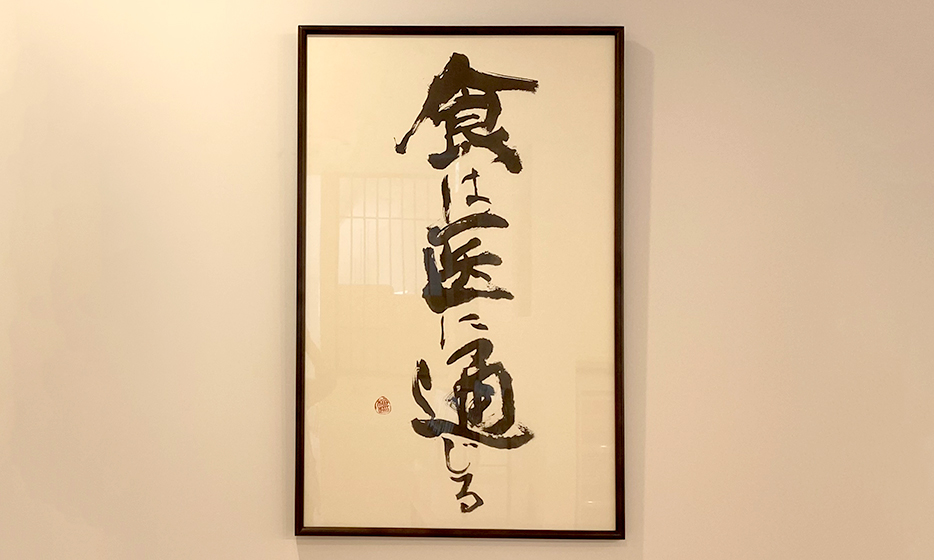 食は医に通じる